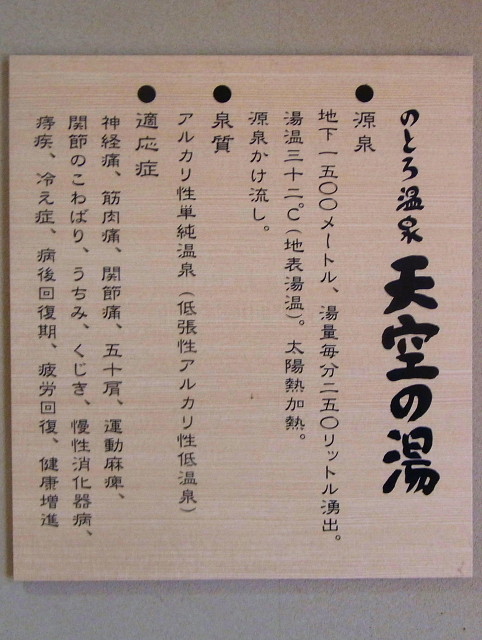 のとろ温泉 天空の湯
●源泉
地下一五〇〇メートル、湯量毎分二五〇リットル湧出。
湯温三十二℃(地表湯温)。太陽熱加熱。
源泉かけ流し。
●泉質
アルカリ性単純温泉(低張性アルカリ性低温泉)
●適応症
神経痛、筋肉痛、関節痛、五十肩、運動麻痺、
関節のこわばり、うちみ、くじき、慢性消化器病、
痔疾、冷え症、病後回復期、疲労回復、健康増進